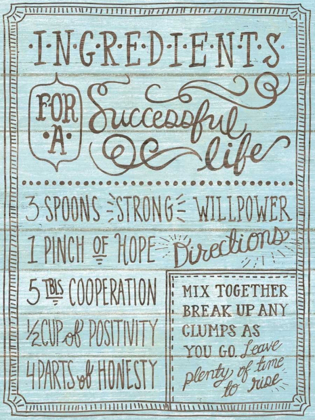 ·I·N·G·R·E·D·I·E·N·T·S·
FOR ·A· Successful life
3 SPOONS STRONG WILLPOWER
1 PINCH OF HOPE
5 TBLS COOPERATION
½ CUP of POSITIVITY
4 PARTS of HONESTY
Directions
MIX TOGETHER
BREAK UP ANY
CLUMPS AS
YOU GO. Leave
plenty of time
to rise